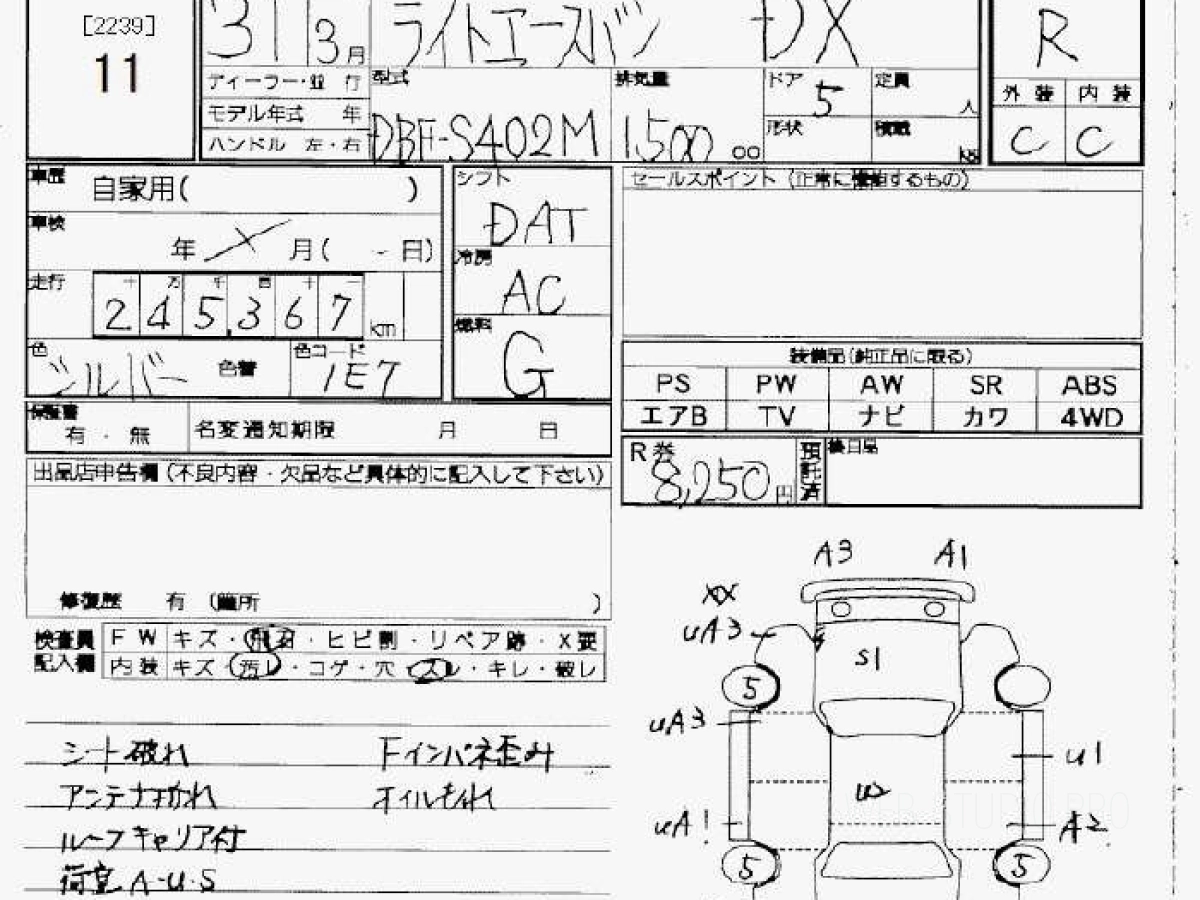 [2239]
11
31 3月
ライトエースバン DX
R
ディーラー・並 行
モデル年式 年
ハンドル 左・右
型式
DBF-S402M
排気量
1,500 00
ドア 5
定員 人
形状
積載 kg
外 装 内 装
C C
車歴
自家用( )
車検
年 月( - 日)
走行
十 万 千 百 十 一
245,367 km
色
シルバー
色替
色コード
1E7
シフト
DAT
冷房
AC
燃料
G
セールスポイント (正常に機能するもの)
装備品(純正品に限る)
PS PW AW SR ABS
エアB TV ナビ カワ 4WD
保証書
有 ・ 無
名変通知期限 月 日
R券
8,250円
預託済
後日品
出品店申告欄(不良内容・欠品など具体的に記入して下さい)
修復歴 有 (箇所 )
検査員記入欄
FW キズ・飛石・ヒビ割・リペア跡・X要
内装 キズ・汚レ・コゲ・穴・スレ・キレ・破レ
シート破れ
Fインパネ歪み
アンテナ折れ
オイルもれ
ルーフキャリア付
荷室 A・U・S
A3 A1
XX
uA3
S1
5
uA3
u1
u2
uA1
A2
5 5